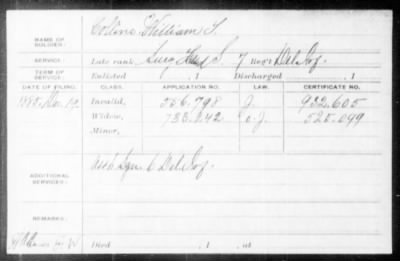 NAME OF SOLDIER: Collins, William S.
SERVICE: Late rank, Surg Hosp S, 7 Reg't Del Inf.
TERM OF SERVICE: Enlisted , 1 Discharged , 1
DATE OF FILING. CLASS. APPLICATION NO. LAW. CERTIFICATE NO.
1885, Nov. 19 Invalid, 556.798 J. 932.605
Widow, 783.242 O.J. 525.099
Minor,
ADDITIONAL SERVICES: Asst Sgn 6 Del Inf.
REMARKS:
Died , 1 , at